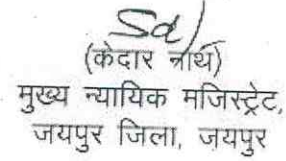 Sd/
(केदार नाथ)
मुख्य न्यायिक मजिस्ट्रेट,
जयपुर जिला, जयपुर